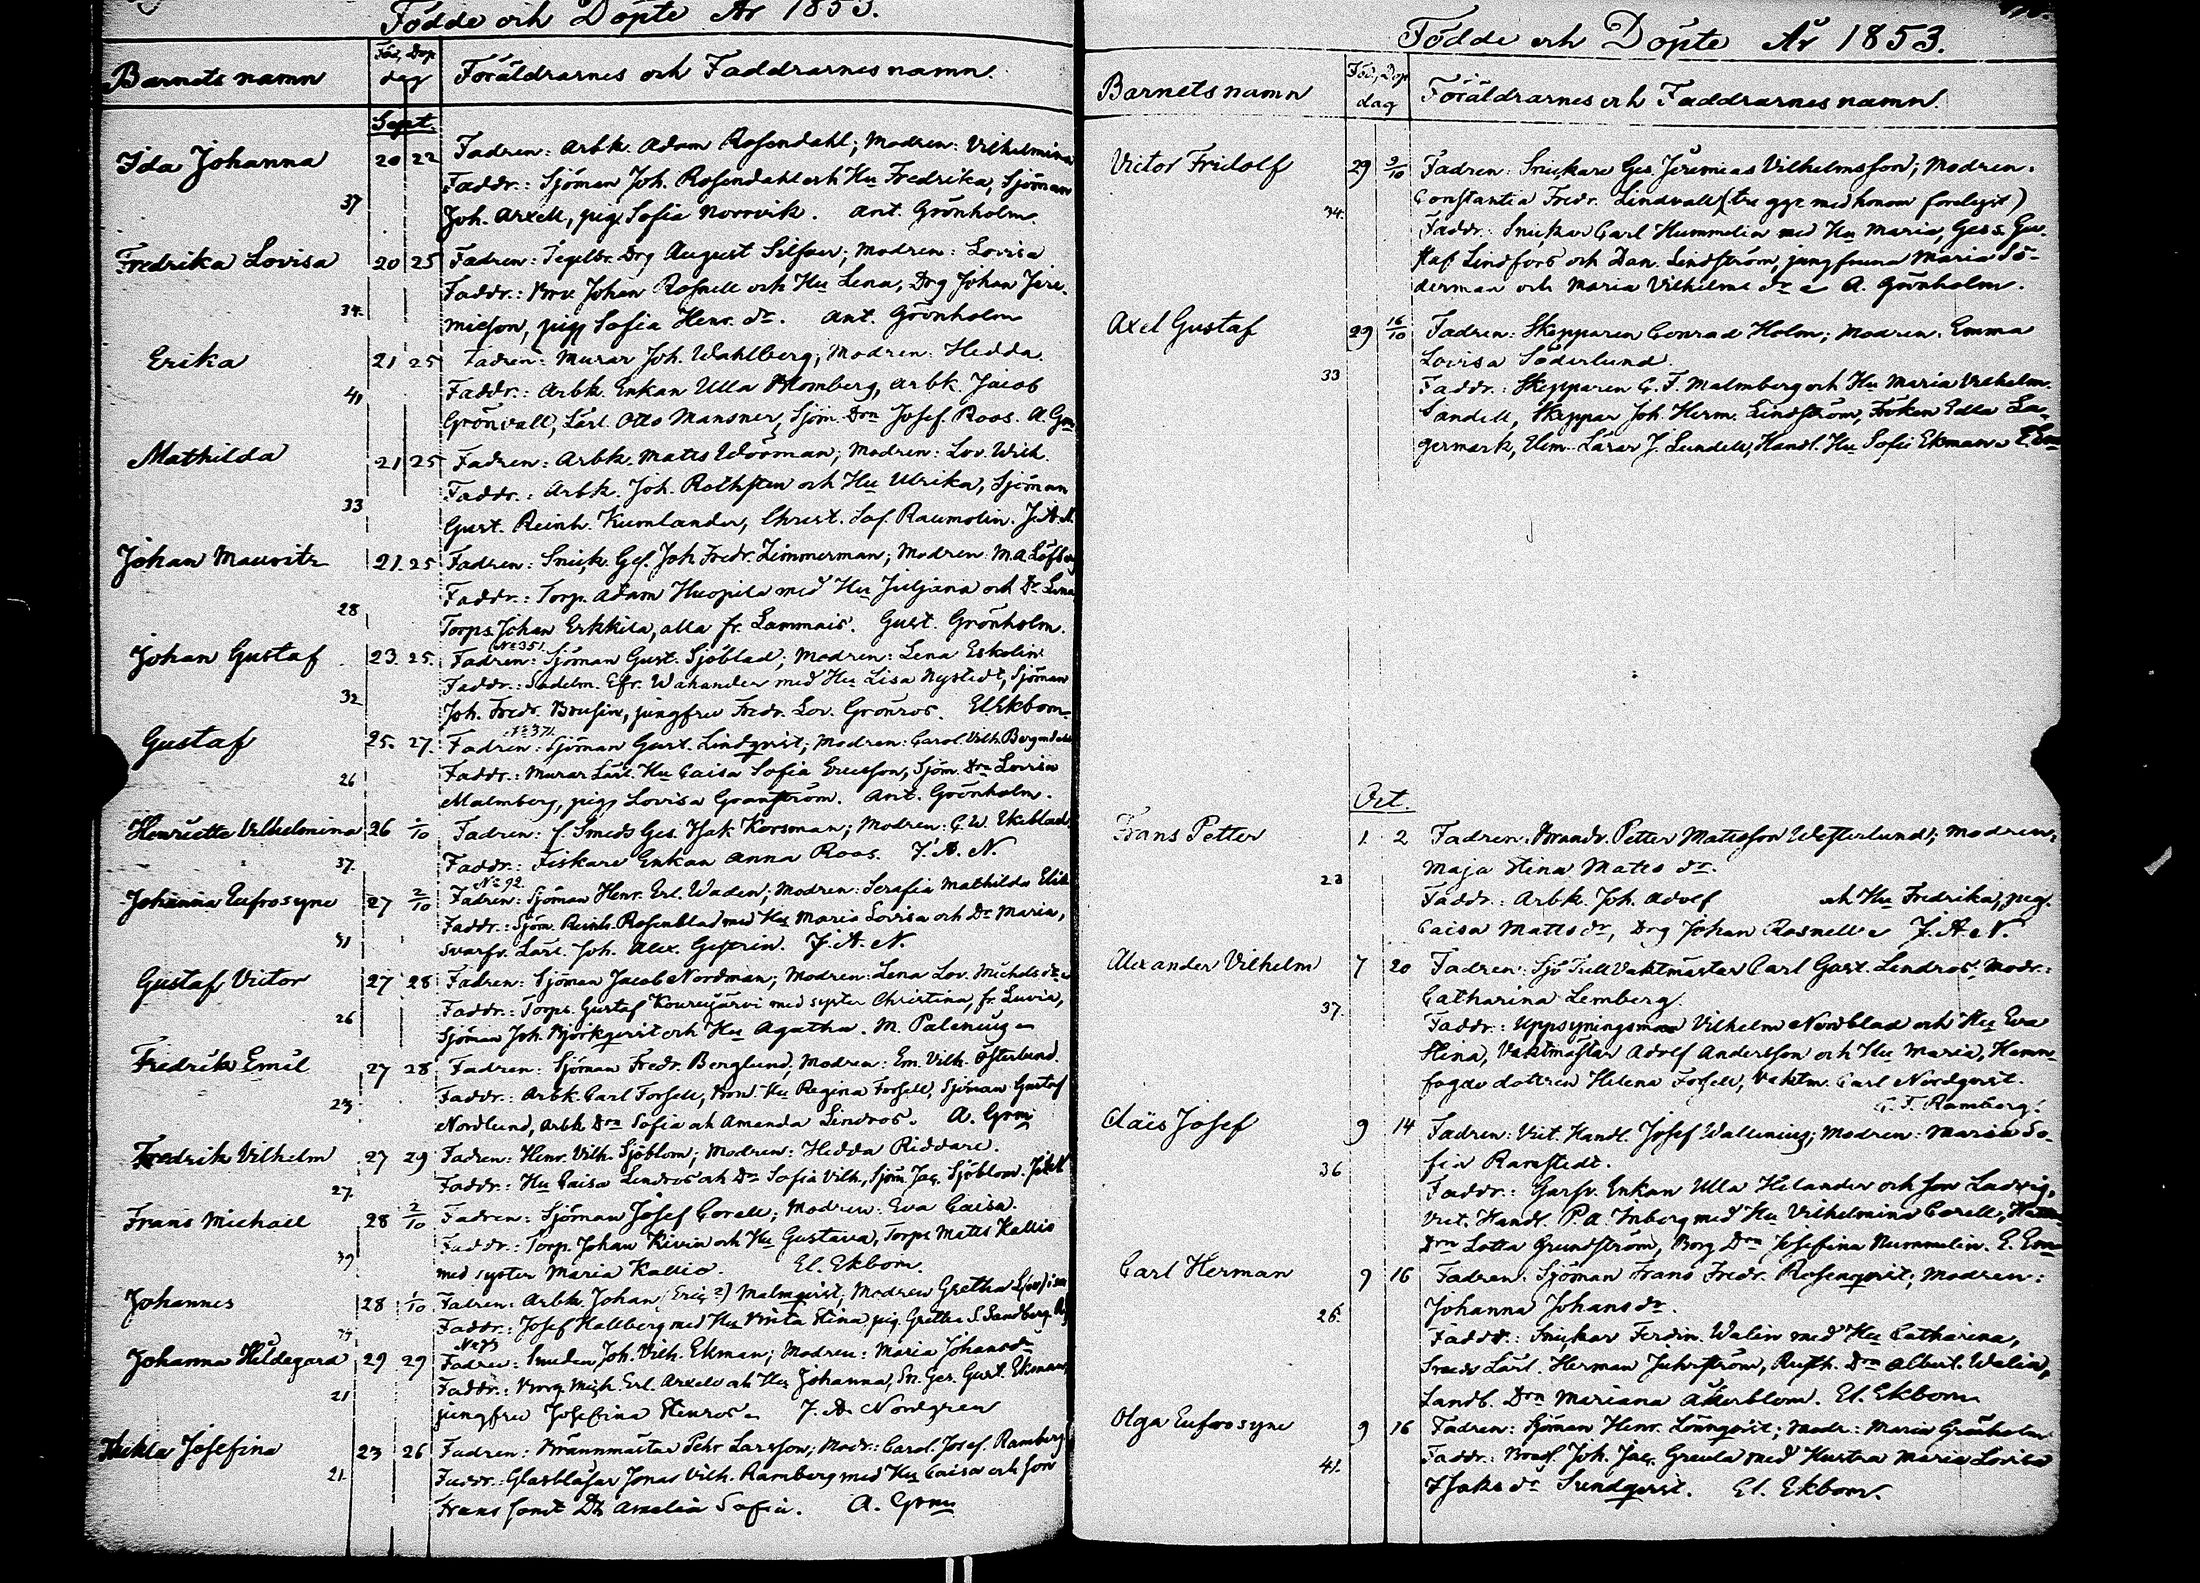 Födde och Döpte År 1853.
Barnets namn
Föd. Dop
dag
Föräldrarnes och Faddrarnes namn.
Sept.
Ida Johanna 20 22 Fadren: Arbk. Adam Rosendahl; Modren: Vilhelmina
Faddr.: Sjöman Joh. Rosendahl och Hu Fredrika, Sjöman
37 Joh. Axell, pig. Sofia Norrvik. Ant. Grönholm.
Fredrika Lovisa 20 25 Fadren: Tegelbr. Drg August Silfver; Modren: Lovisa
Faddr.: Johan Rosnell och Hu Lena, Drg Johan Jere-
34. miesson, pig. Sofia Henr. dr. Ant. Grönholm
Erika 21 25 Fadren: Murar Joh. Wahlberg; Modren: Hedda.
Faddr.: Arbk. Enkan Ulla Blomberg, Arbk. Jacob
41 Grönvall, Lärl. Otto Mansner, Sjöm. Drn Josef. Roos. A. Gm
Mathilda 21 25 Fadren: Arbk. Matts Wööman; Modren: Lov. Wilh.
Faddr.: Arbk. Joh. Rothsten och Hu Ulrika, Sjöman
33 Gust. Reinh. Kumlander, Christ. Sof. Raumolin. J. A. N.
Johan Mauritz 21. 25 Fadren: Snick. Ges. Joh. Fredr. Zimmerman; Modren: M. A. Löfberg
Faddr.: Torp. Adam Huopila med Hu Juljana och Dr Lena
28 Torps. Johan Erkkila, alla fr. Lammais. Gust. Grönholm.
(No 351
Johan Gustaf 23. 25. Fadren: Sjöman Gust. Sjöblad; Modren: Lena Eskolin
Faddr.: Sadelm. Efr. Wahander med Hu Lisa Nystedt, Sjöman
32 Joh. Fredr. Brusin, jungfru Fredr. Lov. Grönroos. El. Ekbom.
No 371.
Gustaf 25. 27. Fadren: Sjöman Gust. Lindqvist; Modren: Carol. Vilh.
Faddr.: Murar Lärl. Hu Caisa Sofia Ericsson, Sjöm. Drn Lovisa
26 Malmberg, pig. Lovisa Granström. Ant. Grönholm.
Henrietta Vilhelmina 26 2/10 Fadren: f. Smeds Ges. Isak Korsman; Modren: C. W. Ekeblad
37. Faddr.: Fiskare Enkan Anna Roos. J. A. N.
No 92
Johanna Eufrosyne 27 2/10 Fadren: Sjöman Henr. Erl. Waden; Modren: Serafia Mathilda
Faddr.: Sjöm. Reinh. Rosenblad med Hu Maria Lovisa och Dr Maria,
31 Svarfv. Lärl. Joh. Alex. Gestrin. J. A. N.
Gustaf Victor 27 28 Fadren: Sjöman Jacob Nordman; Modren: Lena Lov. Michels dr
Faddr.: Torps. Gustaf Kourujärvi med syster Christina, fr. Luvia,
26 Sjöman Joh. Björkqvist och Hu Agatha. M. Palenius
Fredrik Emil 27 28 Fadren: Sjöman Fredr. Berglund; Modren: Em. Vilh. Österlund.
Faddr.: Arbk. Carl Forsell, Hu Regina Forsell, Sjöman Gustaf
23. Nordlund, Arbk. Drn Sofia och Amanda Lindros. A. Grm
Fredrik Vilhelm 27 29 Fadren: Henr. Vilh. Sjöblom; Modren: Hedda Riddare.
27. Faddr.: Hu Caisa Lindros och Dr Sofia Vilh., Sjöm. Jac. Sjöblom. J. A. N.
Frans Michael 28 2/10 Fadren: Sjöman Josef Corell; Modren: Eva Caisa.
Faddr.: Torp. Johan Kivin och Hu Gustava, Torps. Matts Kallio
39 med syster Maria Kallio. El. Ekbom.
Johannes 28 1/10 Fadren: Arbk. Johan (Eric?) Malmqvist; Modren Gretha
Faddr.: Josef Hallberg med Hu Brita Stina, pig. Gretha S. Sandberg
No 73
Johanna Hildegard 29 29 Fadren: Smeden Joh. Vilh. Ekman; Modren: Maria Johansdr
Faddr.: Borg. Mich. Erl. Axell och Hu Johanna, Sn. Ges. Gust. Ekman,
21 jungfru Josefina Stenros. J. A. Nordgren
Hekla Josefina 23 26 Fadren: Brännmästar Pehr Larsson; Modr.: Carol. Josef. Ramberg
21. Faddr.: Glasblåsar Jonas Vilh. Ramberg med Hu Caisa och son
Frans samt Dtr Amalia Sofia. A. Grm
Födde och Döpte År 1853.
Barnets namn
Föd. Dop
dag
Föräldrarnes och Faddrarnes namn.
Victor Fridolf 29 9/10 Fadren: Snickare Ges. Jeremias Vilhelmsson; Modren:
34. Constantia Fredr. Lindvall (tre ggr. med honom förelyst)
Faddr.: Snickar Carl Hummelin med Hu Maria, Ges:s Gu-
staf Lindfors och Dan. Lindström, jungfruna Maria Sö-
derman och Maria Vilhelms dr A. Grönholm.
Axel Gustaf 29 16/10 Fadren: Skepparen Conrad Holm; Modren: Emma
Lovisa Söderlund.
33 Faddr.: Skepparen C. F. Malmberg och Hu Maria Vilhelm.
Sandell, Skeppar Joh. Herm. Lindström, Fröken Edla La-
germark, Elem. Lärar J. Lundell, Handl. Hu Sofie Ekman
Oct.
Frans Petter 1. 2 Fadren: Brandv. Petter Mattsson Westerlund; Modren:
23 Maja Stina Matts dr.
Faddr.: Arbk. Joh. Adolf och Hu Fredrika, pig.
Caisa Matts dr, Drg Johan Rosnell J. A. N.
Alexander Vilhelm 7 20 Fadren: Sjö Tull Vaktmästar Carl Gust. Lindros, Modr.:
Catharina Lemberg.
37. Faddr.: Uppsyningsman Vilhelm Nordblad och Hu Eva
Stina, Vaktmästar Adolf Andersson och Hu Maria, Hamn-
fogde dottren Helena Forsell, Vaktm. Carl Nordqvist.
C. F. Ramberg.
Claës Josef 9 14 Fadren: Vict. Handl. Josef Wallenius; Modren: Maria So-
36 fia Ramstedt.
Faddr.: Garfv. Enkan Ulla Helander och son Ludvig,
Vict. Handl. P. A. Inberg med Hu Vilhelmina Carell,
Drn Lotta Grundström, Borg. Drn Josefina Nummelin.
Carl Herman 9 16 Fadren: Sjöman Frans Fredr. Rosenqvist; Modren:
26. Johanna Johans dr.
Faddr.: Snickar Ferdin. Walin med Hu Catharina,
Smeds Lärl. Herman Juhrström, Drn Albert. Walin,
Landb. Drn Mariana Åkerblom. El. Ekbom
Olga Eufrosyne 9 16 Fadren: Sjöman Henr. Lönnqvist; Modr.: Maria Grönholm
41. Faddr.: Joh. Jac. Greula med Hustru Maria Lovisa
Isaks dr Sundqvist. El. Ekbom.